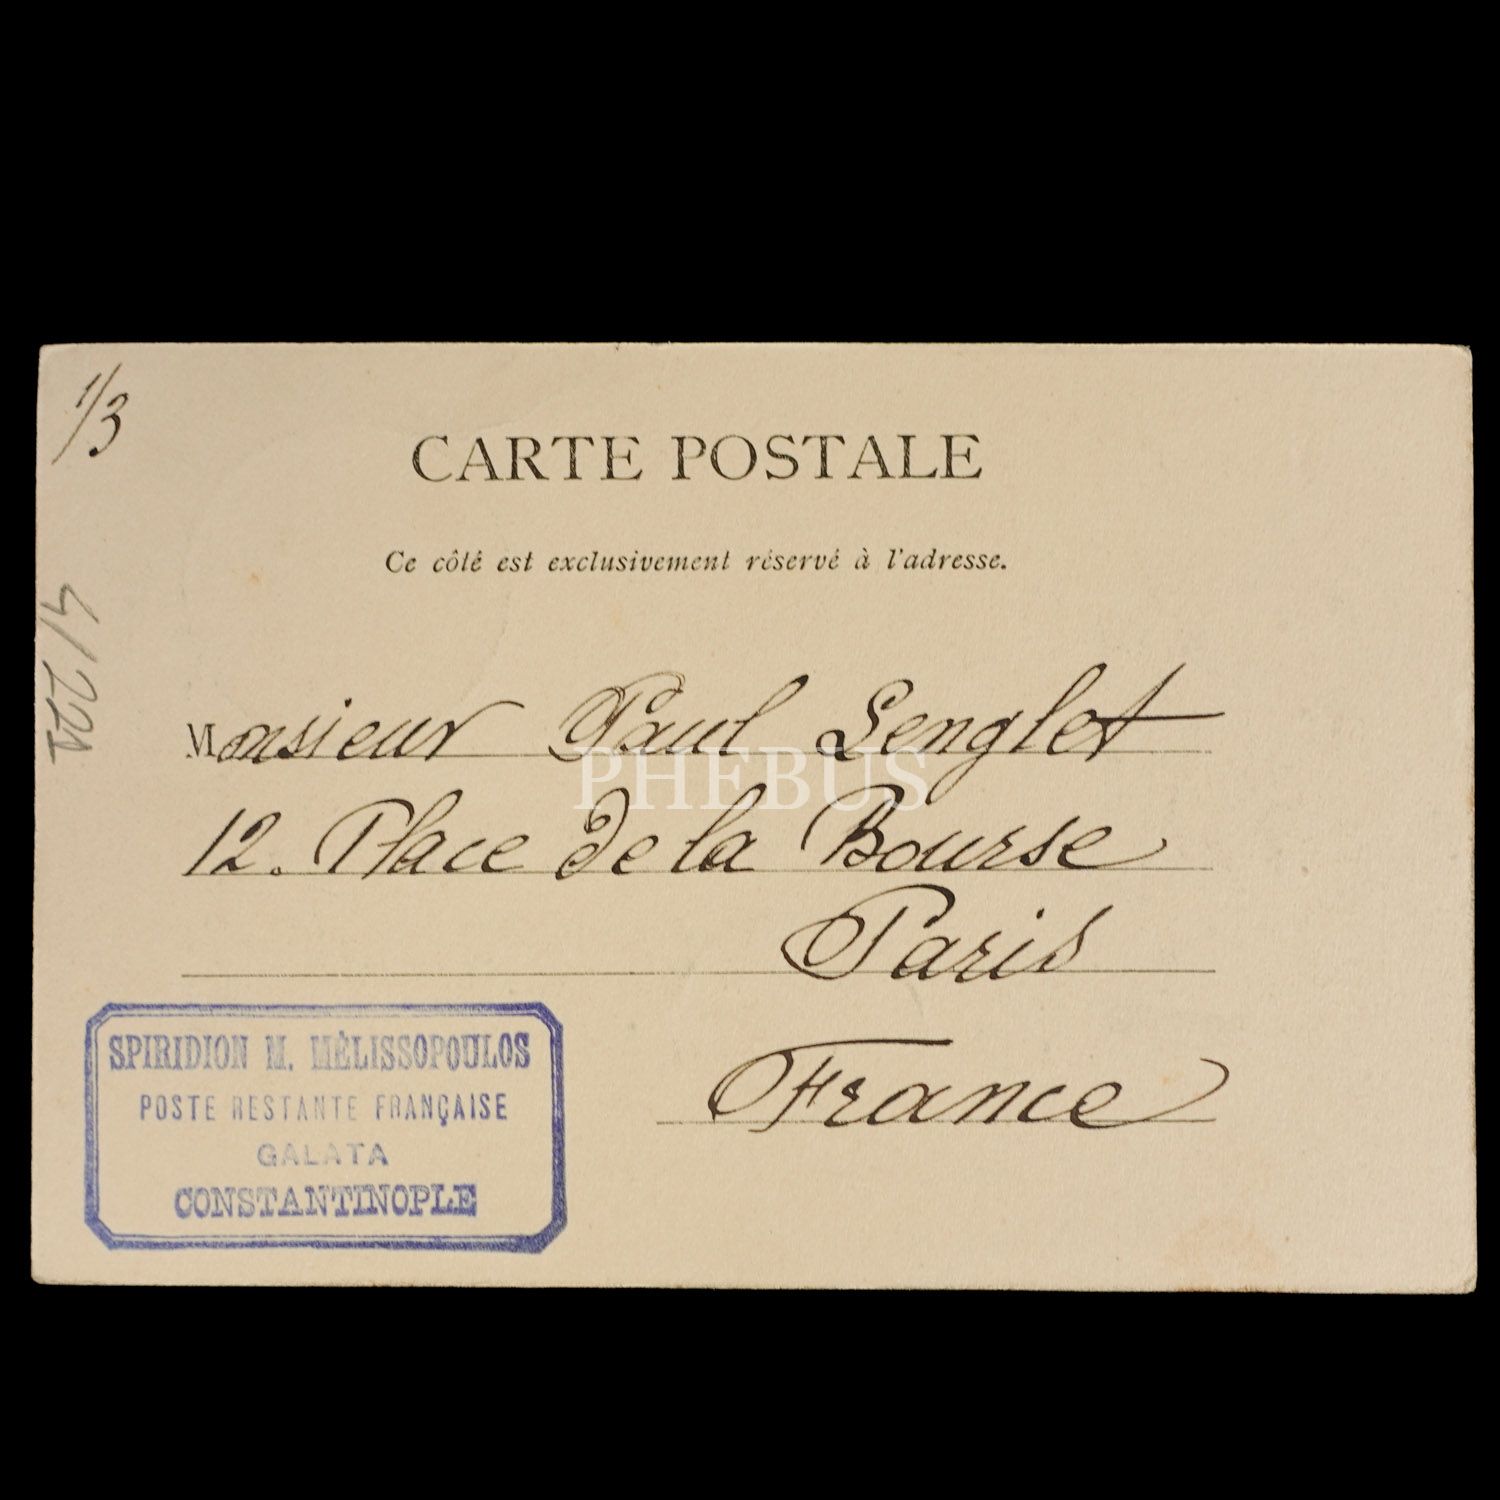 1/3
CARTE POSTALE
Ce côté est exclusivement réservé à l'adresse.
Monsieur Paul Lenglet
PHEBUS
12. Place de la Bourse
Paris
France
SPIRIDION M. MÉLISSOPOULOS
POSTE RESTANTE FRANÇAISE
GALATA
CONSTANTINOPLE